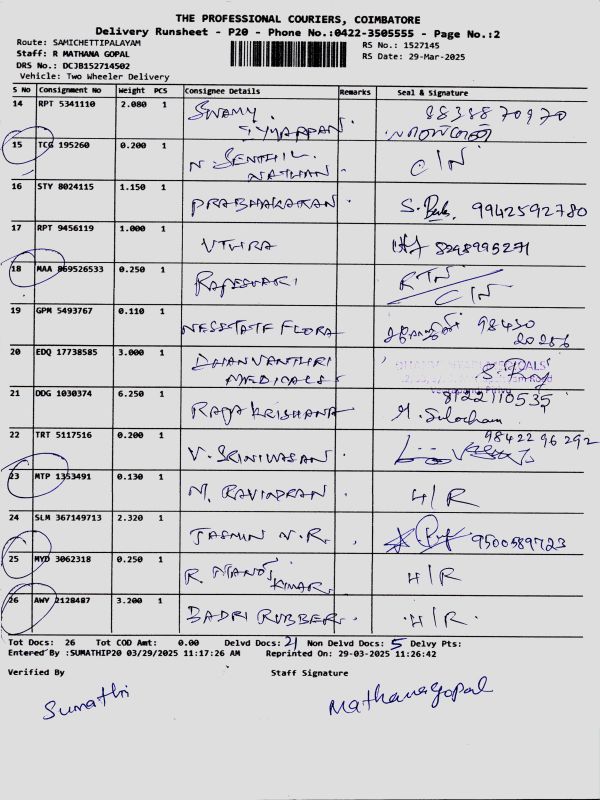 THE PROFESSIONAL COURIERS, COIMBATORE
Delivery Runsheet - P20 - Phone No.:0422-3505555 - Page No.:2
Route: SAMICHETTIPALAYAM
Staff: R MATHANA GOPAL
DRS No.: DCJB152714502
Vehicle: Two Wheeler Delivery
RS No.: 1527145
RS Date: 29-Mar-2025
S No Consignment No Weight PCS Consignee Details Remarks Seal & Signature
14 RPT 5341110 2.080 1 SWAMY IYYAPPAN. 8838870970
15 TCG 195260 0.200 1 N. SENTHIL NATHAN. C/N
16 STY 8024115 1.150 1 PRABHAKARAN. 9942592780
17 RPT 9456119 1.000 1 UTHRA 8248995271
18 MAA 869526533 0.250 1 RAJESWARI RTN C/N
19 GPM 5493767 0.110 1 FLORA 98430 20256
20 EDQ 17738585 3.000 1 DHANVANTHRI MEDICALS
21 DDG 1030374 6.250 1 RAJA KRISHANA 8122110535
22 TRT 5117516 0.200 1 V. SRINIVASAN. 98422 96 292
23 MTP 1353491 0.130 1 M. RAVINDRAN. H/R
24 SLM 367149713 2.320 1 JASMIN N.R. 9500589723
25 MYD 3062318 0.250 1 R. MANOJ KUMAR. H/R
26 AWY 2128487 3.200 1 BADRI RUBBER. H/R.
Tot Docs: 26 Tot COD Amt: 0.00 Delvd Docs: 21 Non Delvd Docs: 5 Delvy Pts:
Entered By :SUMATHIP20 03/29/2025 11:17:26 AM Reprinted On: 29-03-2025 11:26:42
Verified By Staff Signature
Sumathi MathanaGopal